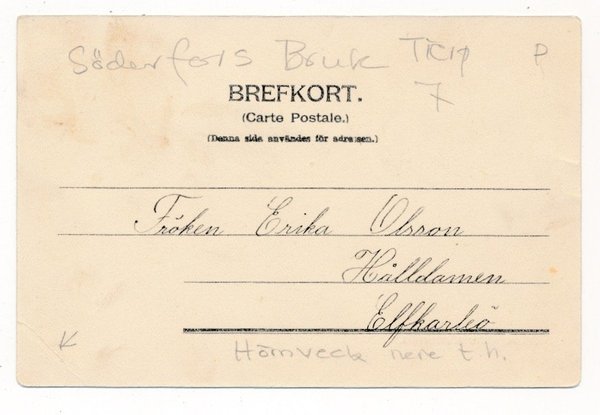 Söderfors Bruk Tierp P
7
BREFKORT.
(Carte Postale.)
(Denna sida användes för adressen.)
Fröken Erika Olsson
Hålldamen
Elfkarleö
K
Hörnveck nere t.h.